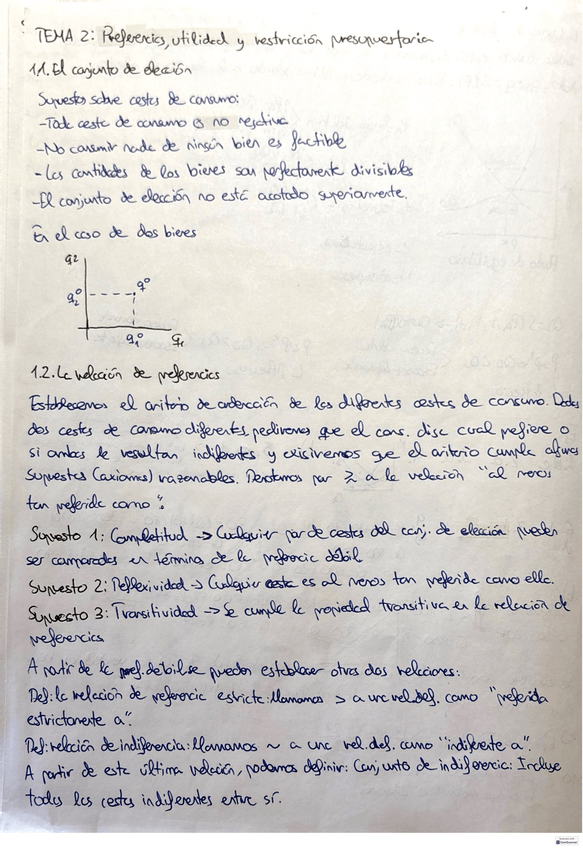 TEMA 2: Preferencias, utilidad y restricción presupuestaria
1.1. El conjunto de elección
Supuestos sobre cestas de consumo:
-Toda cesta de consumo es no negativa
-No consumir nada de ningún bien es factible
-Las cantidades de los bienes son perfectamente divisibles
-El conjunto de elección no está acotado superiormente.
En el caso de dos bienes
q2
q2⁰ q⁰
q1⁰ q1
1.2. La relación de preferencias
Establecemos el criterio de ordenación de las diferentes cestas de consumo. Dadas
dos cestas de consumo diferentes, pediremos que el cons. diga cual prefiere o
si ambas le resultan indiferentes y exigiremos que el criterio cumpla algunos
supuestos (axiomas) razonables. Denotamos por ≿ a la relación "al menos
tan preferida como".
Supuesto 1: Completitud → Cualquier par de cestas del conj. de elección pueden
ser comparadas en término de la preferencia débil
Supuesto 2: Reflexividad → Cualquier cesta es al menos tan preferida como ella.
Supuesto 3: Transitividad → Se cumple la propiedad transitiva en la relación de
preferencias
A partir de la pref. débil se pueden establecer otras dos relaciones:
Def: la relación de preferencia estricta: llamamos > a una rel. def. como "preferida
estrictamente a".
Def: relación de indiferencia: llamamos ~ a una rel. def. como "indiferente a".
A partir de esta última relación, podemos definir: Conjunto de indiferencia: Incluye
todas las cestas indiferentes entre sí.